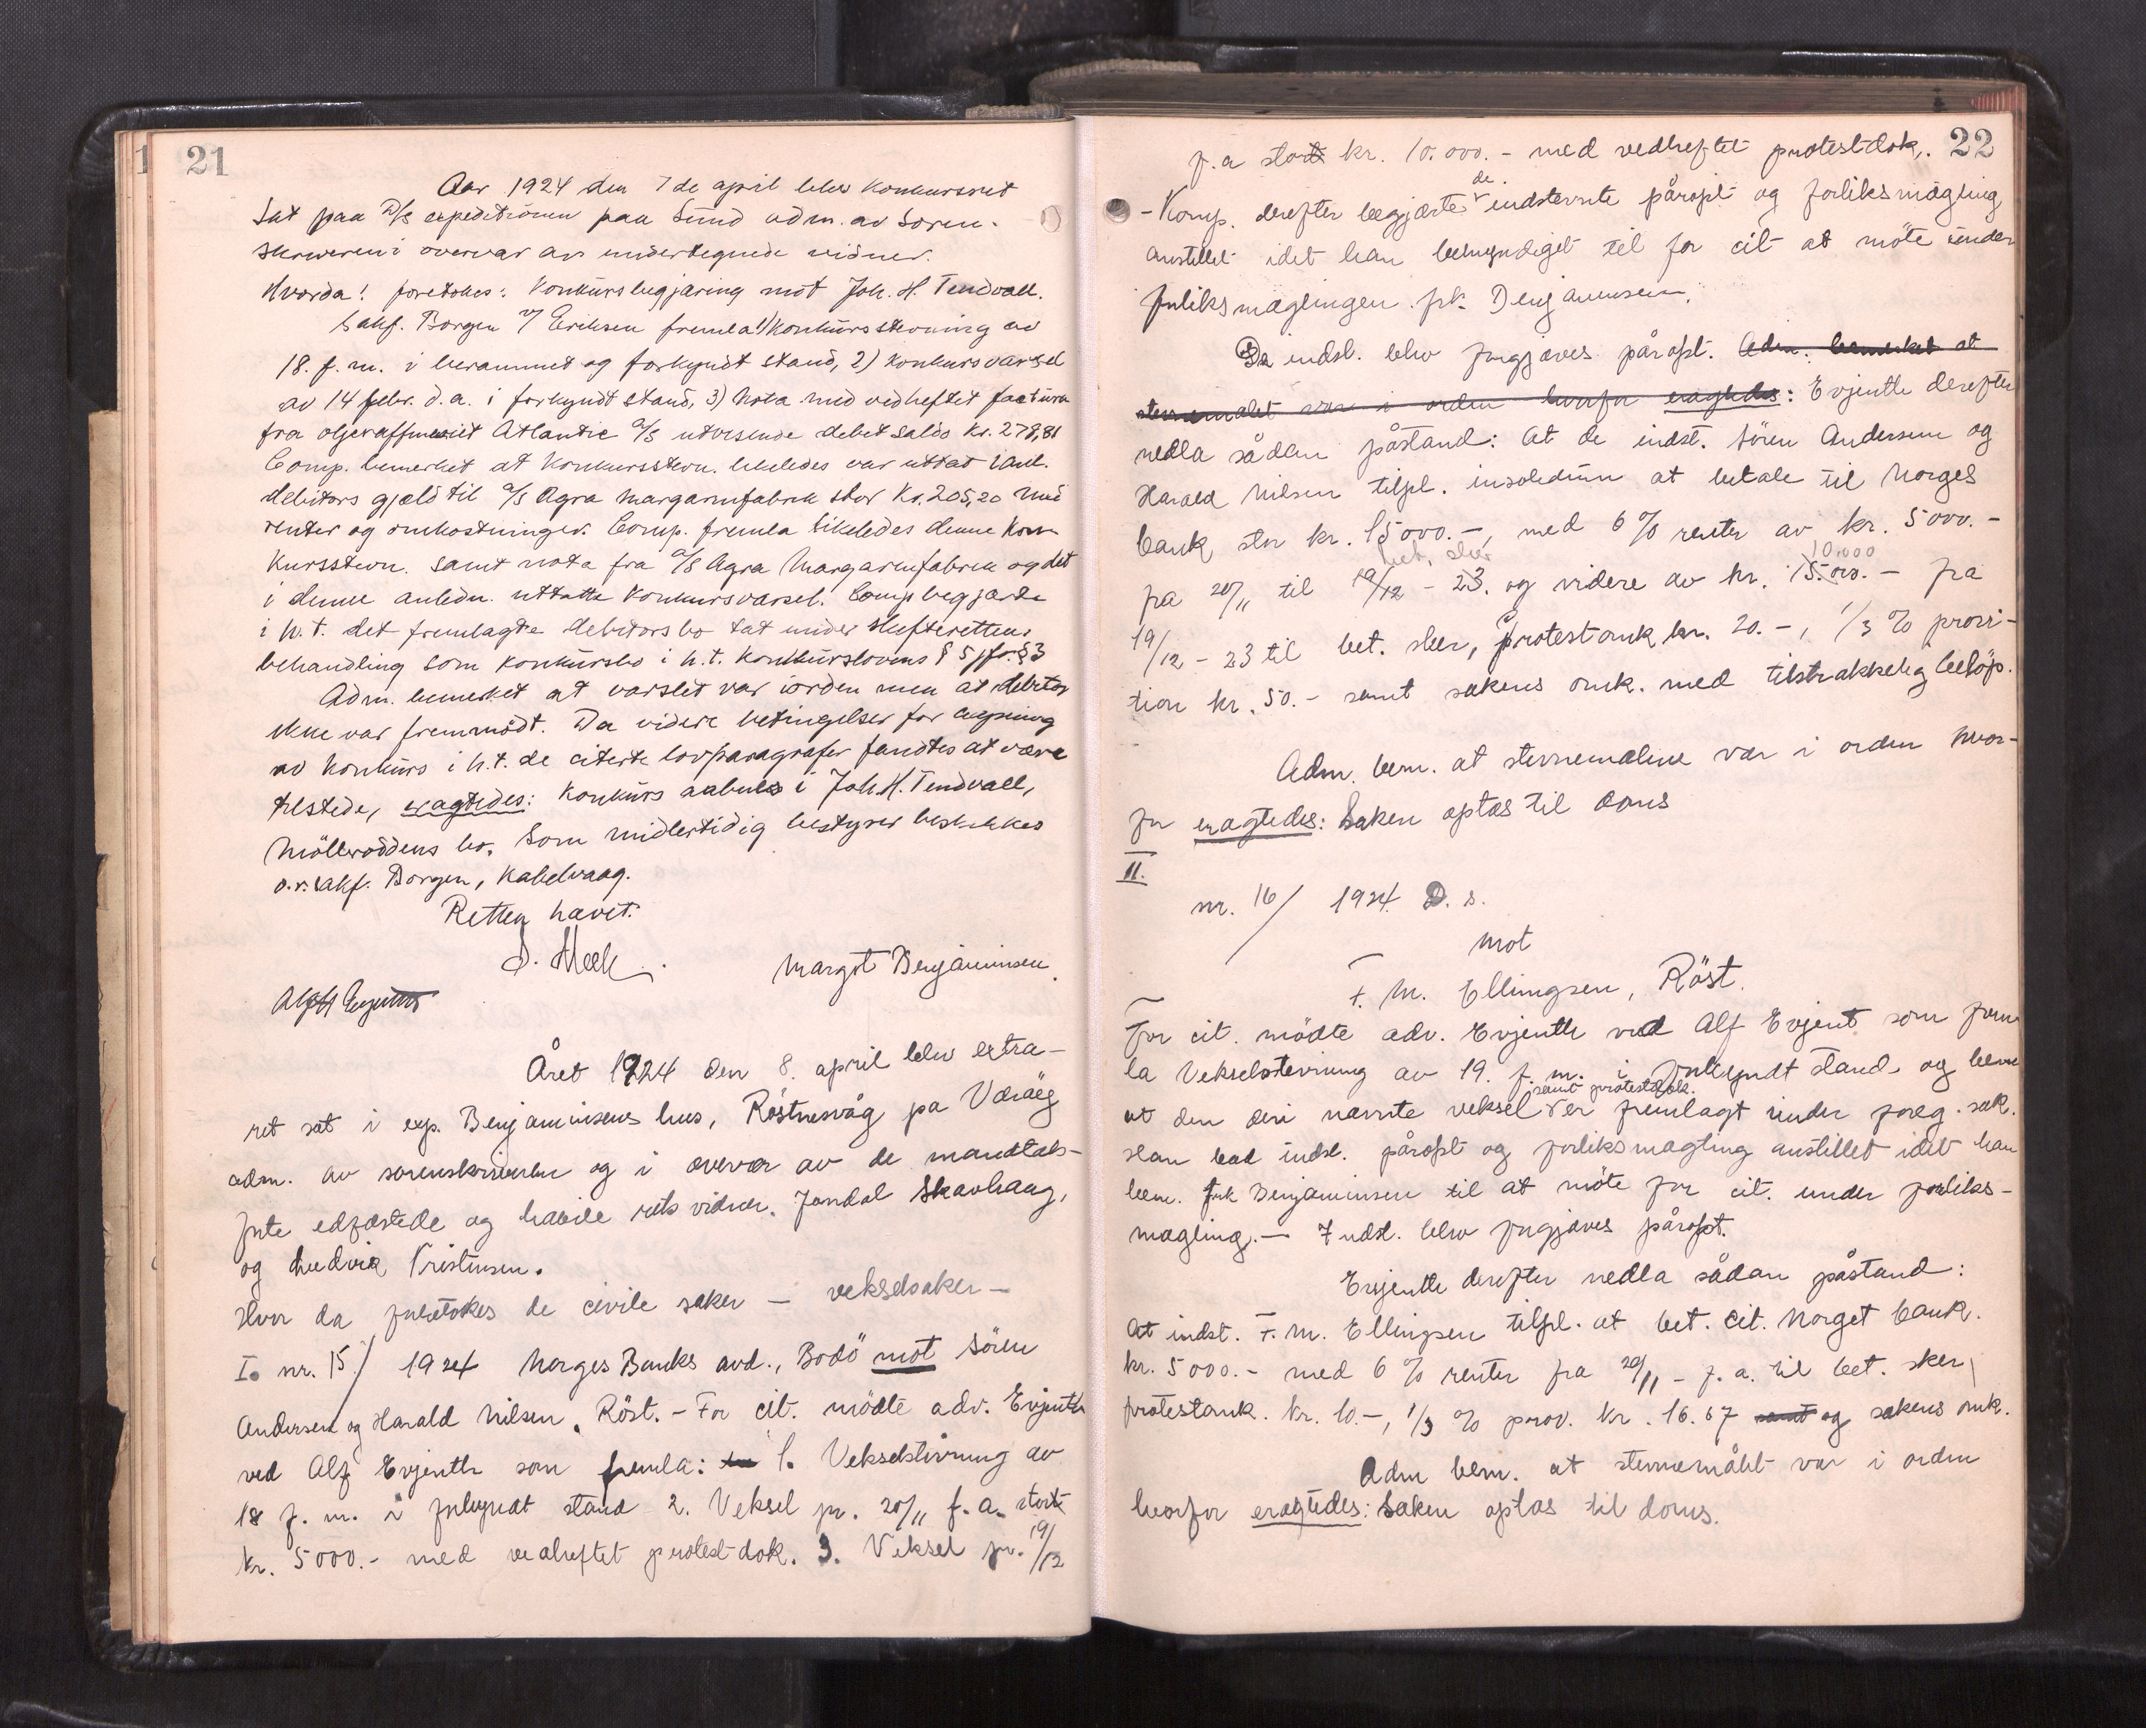 21
Aar 1924 den 7de april blev Konkursret
Sat paa D/s expeditionen paa Sund adm. av Soren-
skriveren i overvær av undertegnede vidner.
Hvorda! foretokes: Konkursbegjæring mot Joh. H. Tendvall.
Sakf. Borgen v/ Eriksen fremla 1) Konkursstevning av
18. f. m. i berammet og forkyndt stand, 2) Konkursvarsel
av 14 febr. d. a. i forkyndt stand, 3) Nota med vedheftet factura
fra oljeraffineriet Atlantic A/S utvisende debet saldo Kr. 278,81
Comp. bemerket at Konkursstevn. likeledes var uttat i anl.
debitors gjæld til A/S Agra Margarinfabrik stor Kr. 205,20 med
renter og omkostninger. Comp. fremla likeledes denne Kon-
kursstevn. samt nota fra A/S Agra Margarinfabrik og det
i denne anledn. uttatte Konkursvarsel. Comp begjærte
i h. t. det fremlagte debitors bo tat under skifterettens
behandling som Konkursbo i h. t. Konkurslovens § 5 jfr. § 3
Adm. bemerket at varslet var i orden men at debitor
ikke var fremmødt. Da videre betingelser for aapning
av Konkurs i h. t. de citerte lovparagrafer fandtes at være
tilstede, eragtedes: Konkurs aabnes i Joh. H. Tendvall,
Mölleroddens bo. Som midlertidig bestyrer beskikkes
o.r.sakf. Borgen, Kabelvaag.
Retten hævet.
Margot Benjaminsen
Året 1924 den 8. april blev extra-
ret sat i exp. Benjaminsens hus, Röstnesvåg pa Væröy
adm. av sorenskriveren og i overvær av de mandtals-
förte edfæstede og habile rets vidner. Jondal Skavhaug,
og Ludvig Kristinsen.
Hvor da foretokes de civile saker – vekselsaker –
I. nr. 15/ 1924 Norges Banks avd., Bodö mot Sören
Andersen og Harald Nilsen, Röst. – For cit. mödte adv. Evjenth
ved Alf Evjenth som fremla: 1. Vekselstevning av
18 f. m. i forkyndt stand 2. Veksel pr. 20/11 f. a. stort
kr. 5000.- med vedheftet protest-dok. 3. Veksel pr. 19/12
22
f. a stort kr. 10.000.- med vedheftet protestdok.
- Komp. derefter begjærte de indstevnte påropt og forliksmægling
anstillet idet han bemyndiget til for cit at möte under
forliksmæglingen frk. Benjaminsen.
Da indst. blev forgjæves påropt. Adm. bemerket at
stevnemålet var i orden hvorfor eragtedes: Evjenth derefter
nedla sådan påstand: At de indst. Sören Andersen og
Harald Nilsen tilpl. insolidum at betale til Norges
bank stor kr. 15000.-, med 6 % renter av kr. 5000.-
bet. sker 10.000
fra 20/11 til 19/12 – 23. og videre av kr. 15.000.- fra
19/12 – 23 til bet. sker, protestomk, kr. 20.-, 1/3 % provi-
tion kr. 50.- samt sakens omk. med tilstrækkelig belöp.
Adm. bem. at stevnemålene var i orden hvor-
for eragtedes: Saken optas til doms
II.
nr. 16/ 1924. D. s.
mot
F. M. Ellingsen, Röst.
For cit. mödte adv. Evjenth ved Alf Evjent som frem-
la Vekselstevning av 19. f. m. i forkyndt stand og bem
at den deri nævnte veksel samt protestdok. er fremlagt under foreg. sak.
Han bad indst. påropt og forliksmægling anstillet idet han
bem. frk Benjaminsen til at möte for cit. under forliks-
mægling. – Indst. blev forgjæves påropt.
Evjenth derefter nedla sådan påstand:
At indst. F. M. Ellingsen tilpl. at bet. cit. Norges bank.
kr. 5000.- med 6 % renter fra 20/11 – f. a. til bet. sker,
protestomk. kr. 10.-, 1/3 % prov. kr. 16.67 samt og sakens omk.
Adm bem. at stevnemålet var i orden
hvorfor eragtedes: Saken optas til doms.